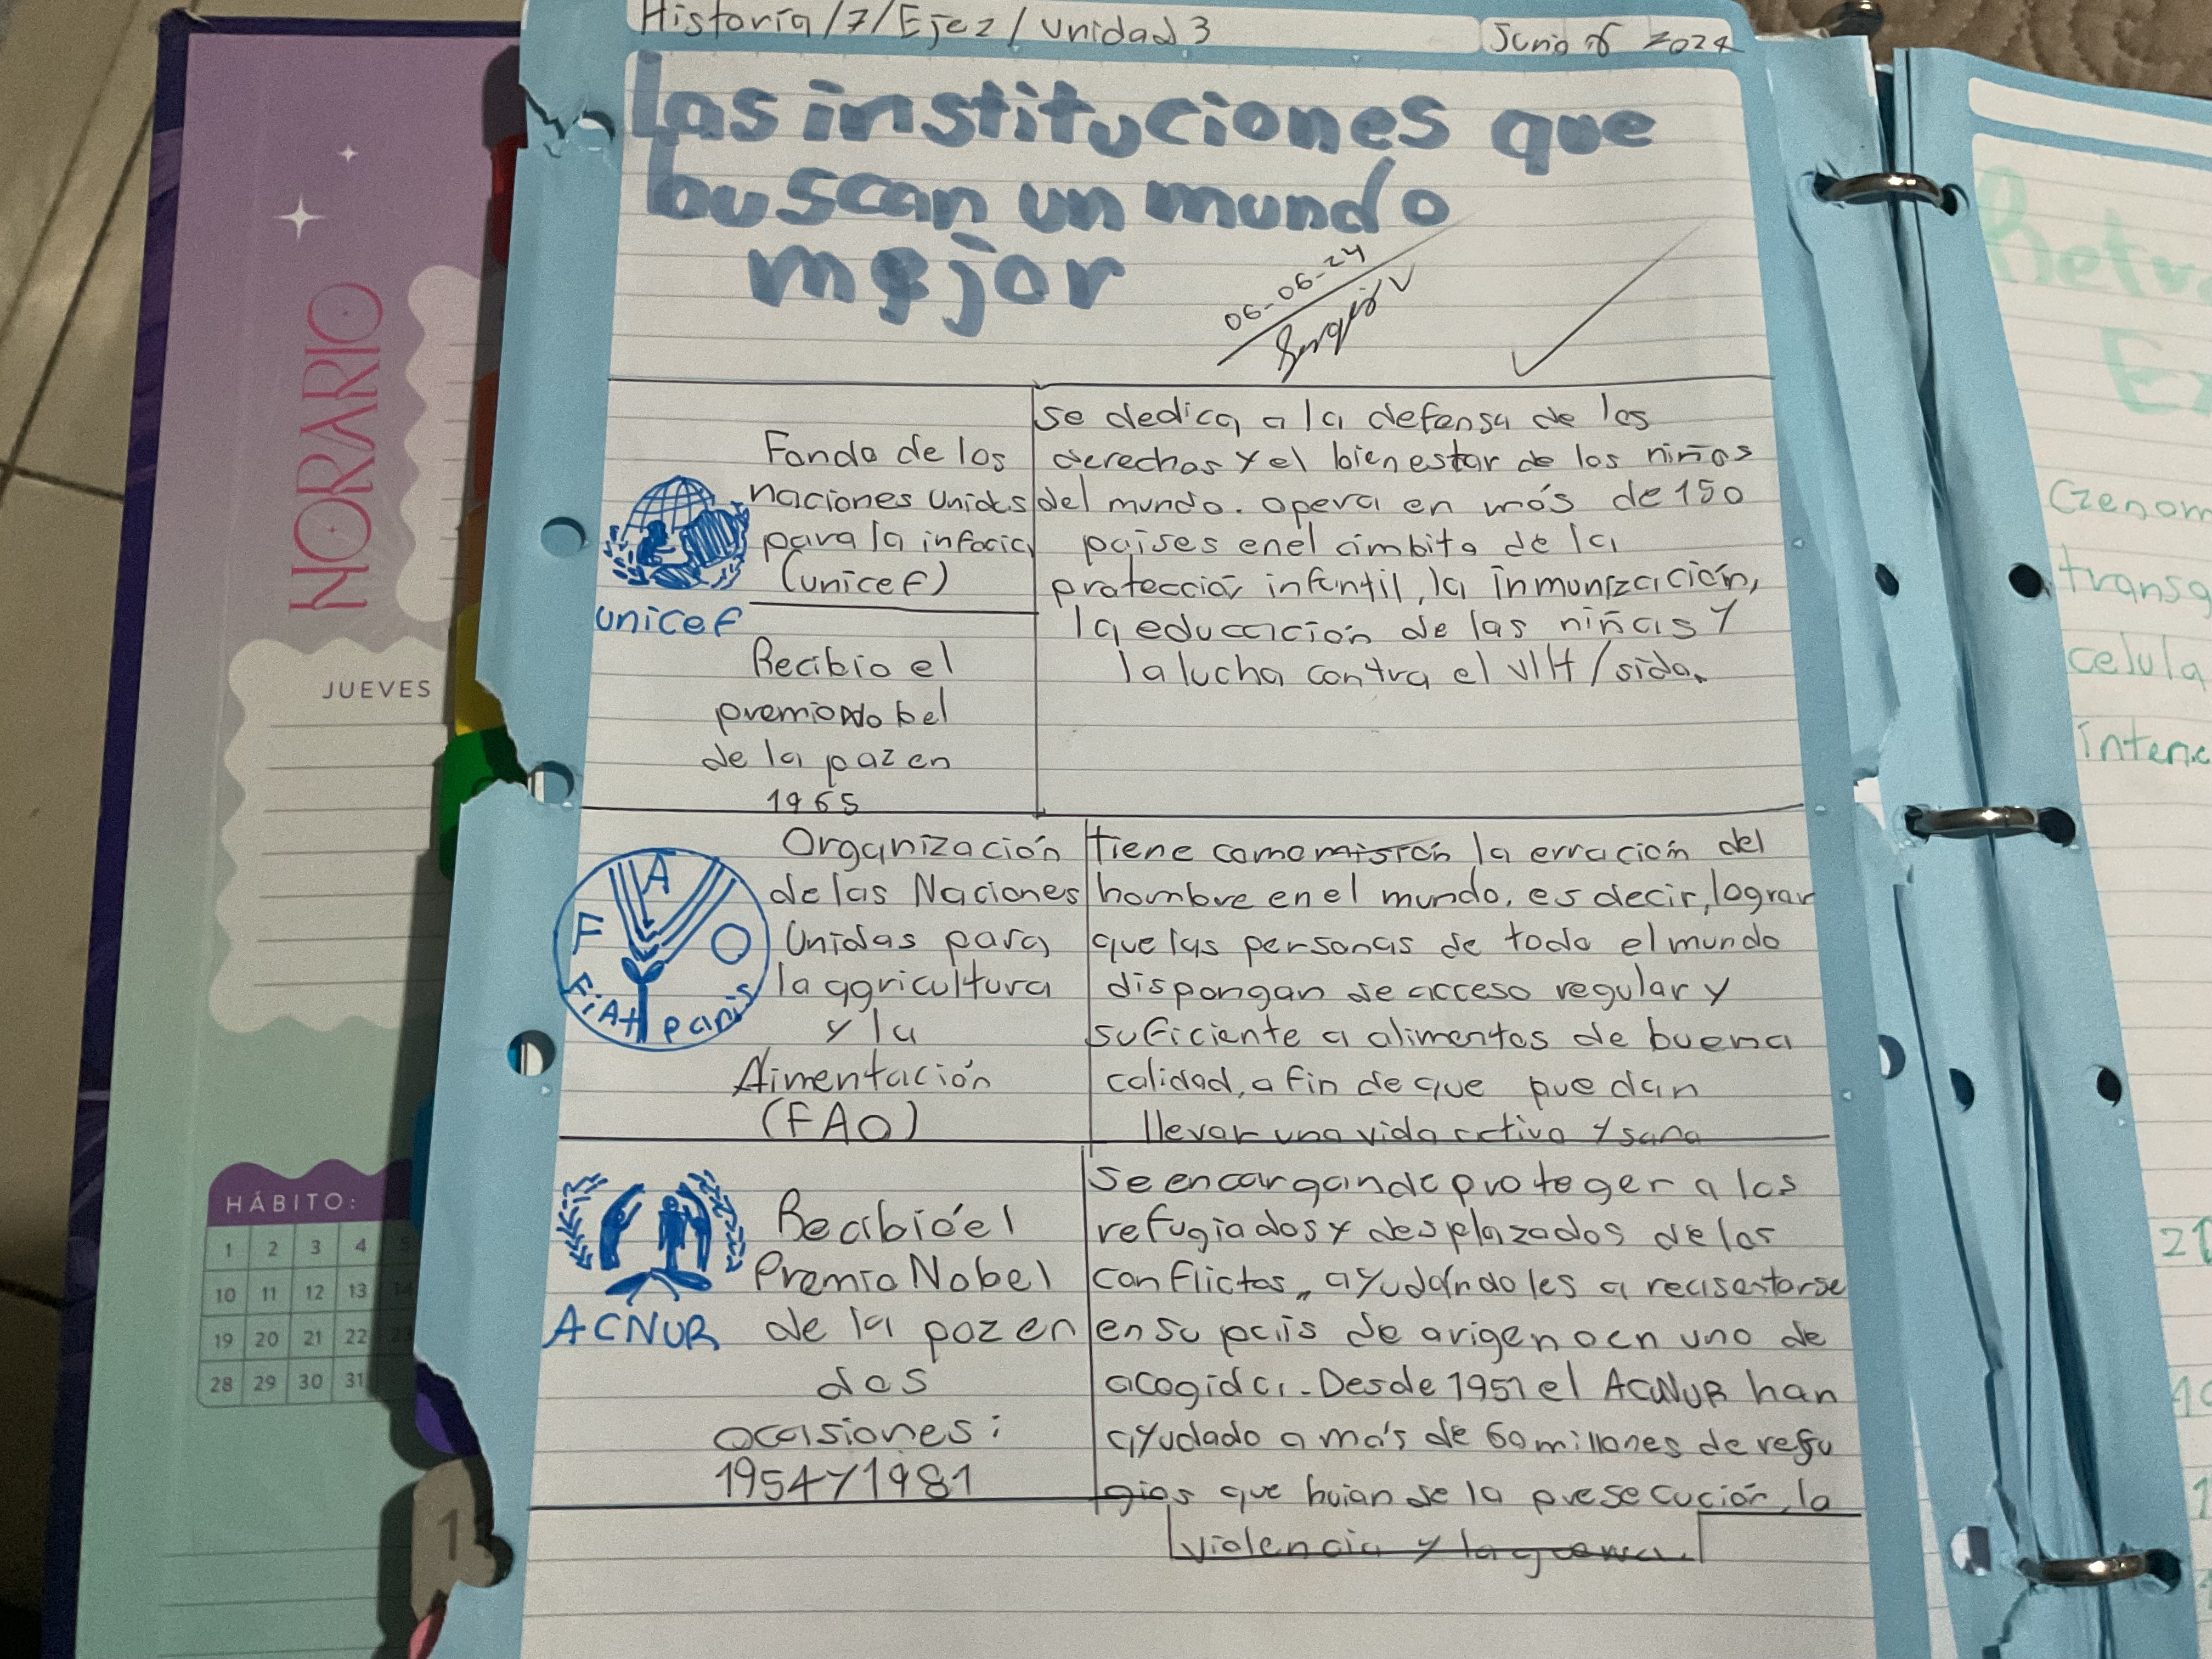 Historia/7/Eje2/Unidad 3
Junio 6 2024
Las instituciones que
buscan un mundo
mejor
06-06-24
HORARIO
JUEVES
HÁBITO:
1 2 3 4 5
10 11 12 13 14
19 20 21 22 23
28 29 30 31
unicef
Fondo de los
naciones Unids
para la infacia
(unicef)
Recibio el
premio Nobel
de la paz en
1965
se dedica a la defensa de los
derechos y el bienestar de los niños
del mundo. opera en más de 150
paises en el ámbito de la
protección infantil, la inmunización,
la educación de las niñas y
la lucha contra el VIH/sida.
F A O
FiAt panis
Organización
de las Naciones
Unidas para
la agricultura
y la
Aimentación
(FAO)
tiene como misión la erración del
hombre en el mundo, es decir, lograr
que las personas de todo el mundo
dispongan de acceso regular y
suficiente a alimentos de buena
calidad, a fin de que puedan
llevar una vida activa y sana
ACNUR
Recibió el
Premio Nobel
de la paz en
dos
ocasiones:
1954 y 1981
Se encargan de proteger a los
refugiados y desplazados de los
conflictos, ayudándoles a reasestarse
en su país de origen o en uno de
acogida. Desde 1951 el ACNUR han
ayudado a más de 60 millones de refu
gios que huian de la presecución, la
violencia y la guerra.
Retr
Ex
Genom
transg
celula
intenc